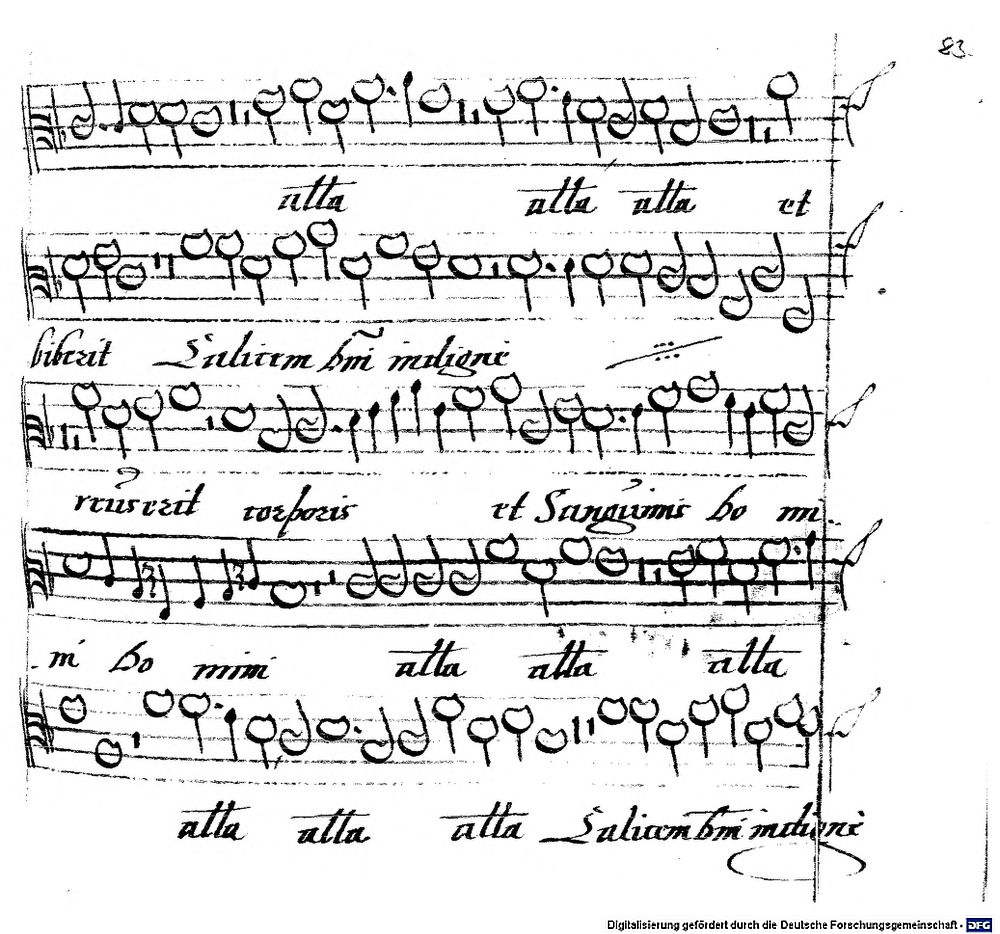 83.
alla alla alla et
biberit Calicem dm̃ indigne
reus erit corporis et Sanguinis Do mi
ni Do mini alla alla alla
alla alla alla Calicem dm̃ indigne
Digitalisierung gefördert durch die Deutsche Forschungsgemeinschaft - DFG